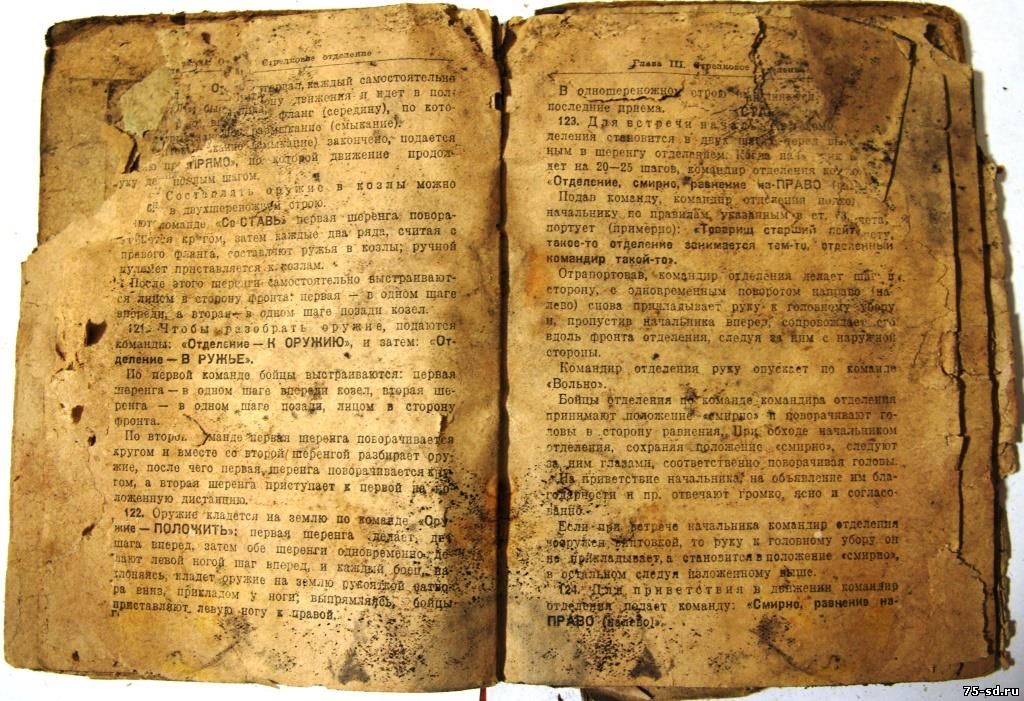 Стрелковое отделение
каждый самостоятельно
движения и идет в пол-
фланг (середину), по кото-
размыкание (смыкание).
(смыкание) закончено, подается
ПРЯМО», по которой движение продол-
шагом.
Составлять оружие в козлы можно
в двухшереножном строю.
команде «СоСТАВЬ» первая шеренга повора-
кругом, затем каждые два ряда, считая с
правого фланга, составляют ружья в козлы; ручной
пулемет приставляется к козлам.
После этого шеренги самостоятельно выстраивают-
ся лицом в сторону фронта: первая — в одном шаге
впереди, а вторая — в одном шаге позади козел.
121. Чтобы разобрать оружие, подаются
команды: «Отделение — К ОРУЖИЮ», и затем: «От-
деление — В РУЖЬЕ».
По первой команде бойцы выстраиваются: первая
шеренга — в одном шаге впереди козел, вторая ше-
ренга — в одном шаге позади, лицом в сторону
фронта.
По второй команде первая шеренга поворачивается
кругом и вместе со второй шеренгой разбирает ору-
жие, после чего первая шеренга поворачивается кру-
гом, а вторая шеренга приступает к первой на по-
ложенную дистанцию.
122. Оружие кладется на землю по команде «Ору-
жие — ПОЛОЖИТЬ»: первая шеренга делает два
шага вперед, затем обе шеренги одновременно де-
лают левой ногой шаг вперед, и каждый боец, на-
клоняясь, кладет оружие на землю рукояткой затво-
ра вниз, прикладом у ноги; выпрямляясь, бойцы
приставляют левую ногу к правой.
Глава III. Стрелковое отделение
В одношереножном строю
последние приема.
123. Для встречи
деления становится в двух шагах перед
ным в шеренгу отделением. Когда
дет на 20—25 шагов, командир отделения
«Отделение, смирно, равнение на-ПРАВО
Подав команду, командир отделения
начальнику по правилам, указанным в ст.
портует (примерно): «Товарищ старший
такое-то отделение занимается тем-то, отделенный
командир такой-то».
Отрапортовав, командир отделения делает шаг в
сторону, с одновременным поворотом направо (на-
лево) снова прикладывает руку к головному убору
и, пропустив начальника вперед, сопровождает его
вдоль фронта отделения, следуя за ним с наружной
стороны.
Командир отделения руку опускает по команде
«Вольно».
Бойцы отделения по команде командира отделения
принимают положение «смирно» и поворачивают го-
ловы в сторону равнения. При обходе начальником
отделения, сохраняя положение «смирно», следуют
за ним глазами, соответственно поворачивая головы.
На приветствие начальника, на объявление им бла-
годарности и пр. отвечают громко, ясно и согласо-
ванно.
Если при встрече начальника командир отделения
вооружен винтовкой, то руку к головному убору он
не прикладывает, а становится в положение «смирно»,
в остальном следуя изложенному выше.
124. Для приветствия в движении командир
отделения подает команду: «Смирно, равнение на-
ПРАВО (налево)».
75-sd.ru